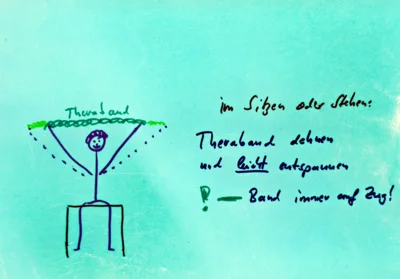 Theraband
im Sitzen oder Stehen:
Theraband dehnen
und leicht entspannen
! — Band immer auf Zug!